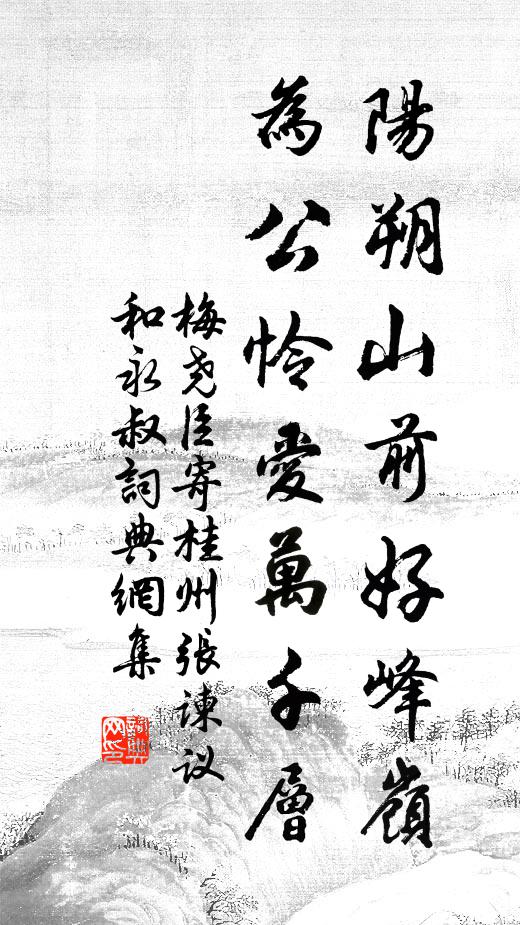 陽朔山前好峰嶺
為公怜愛萬千層
梅尧臣寄桂州張諫议
和永叔詞典網集
詞典网印